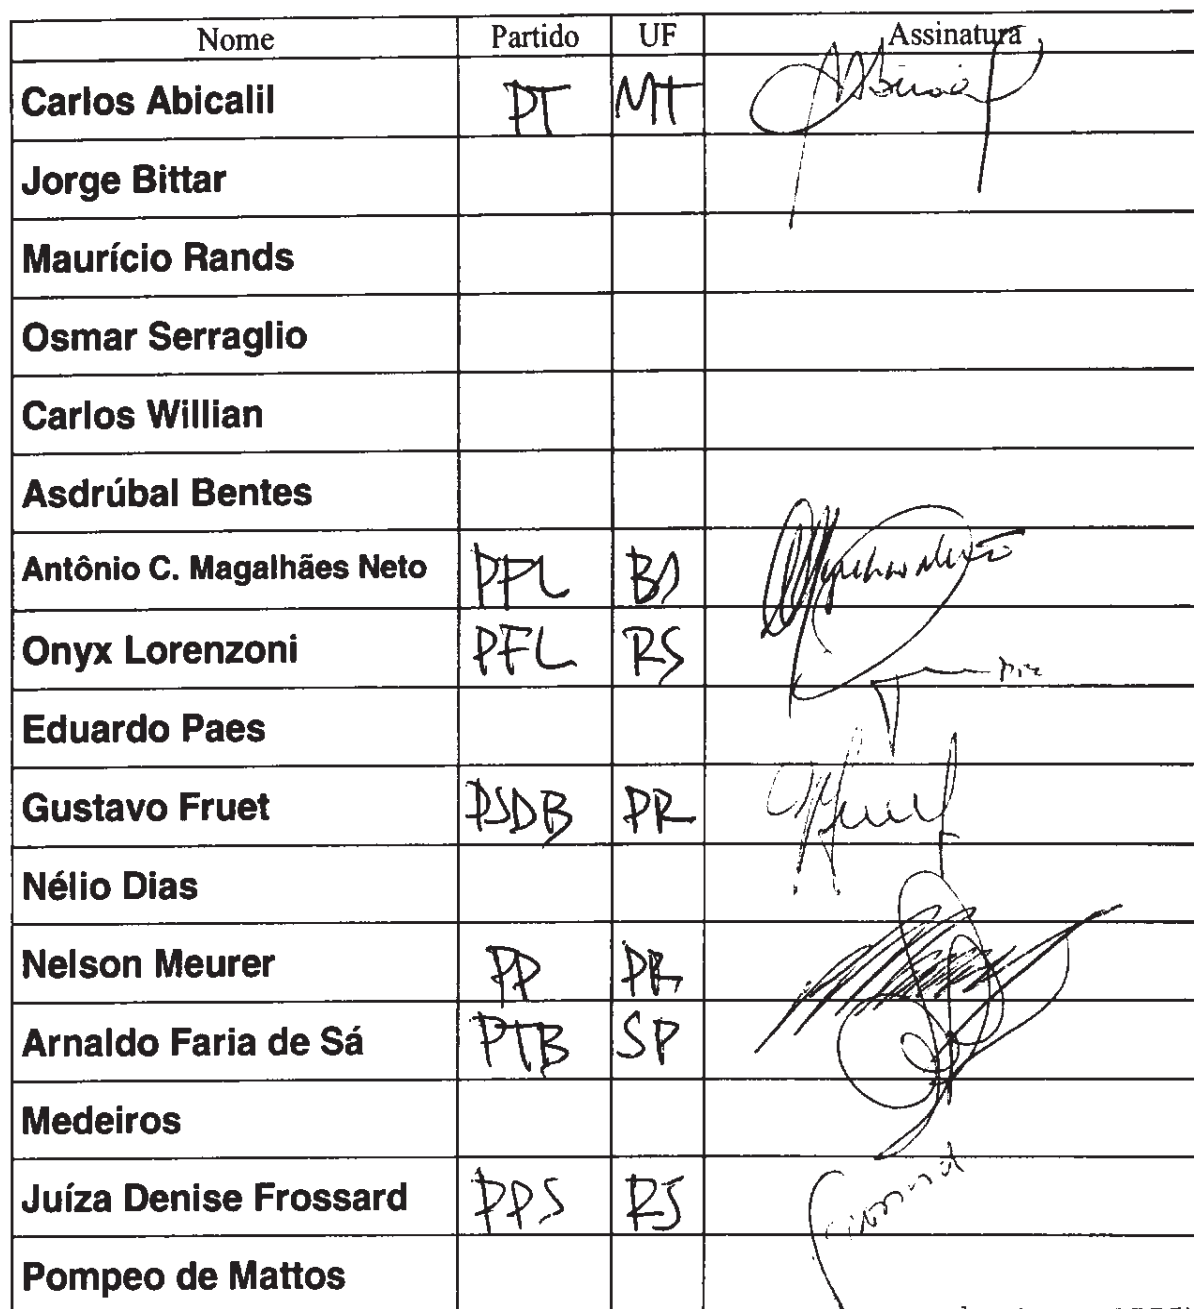 Nome Partido UF Assinatura
Carlos Abicalil PT MT
Jorge Bittar
Maurício Rands
Osmar Serraglio
Carlos Willian
Asdrúbal Bentes
Antônio C. Magalhães Neto PFL BA
Onyx Lorenzoni PFL RS
Eduardo Paes
Gustavo Fruet PSDB PR Fruet
Nélio Dias
Nelson Meurer PP PR
Arnaldo Faria de Sá PTB SP
Medeiros
Juíza Denise Frossard PPS RJ
Pompeo de Mattos